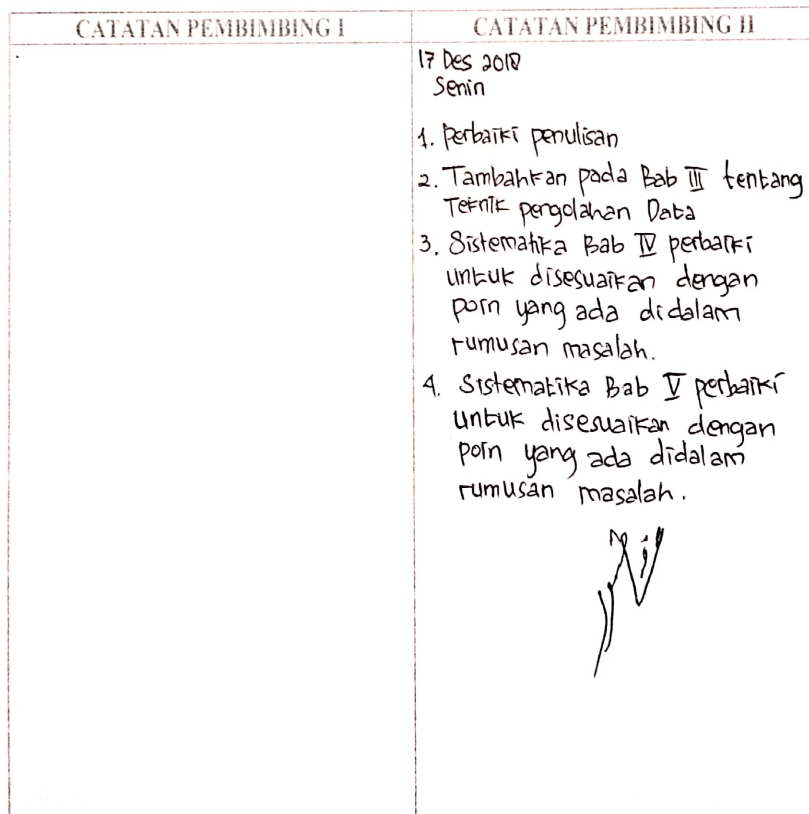 CATATAN PEMBIMBING I
CATATAN PEMBIMBING II
17 Des 2018
Senin
1. Perbaiki penulisan
2. Tambahkan pada Bab III tentang
Teknik pengolahan Data
3. Sistematika Bab IV perbaiki
untuk disesuaikan dengan
poin yang ada didalam
rumusan masalah.
4. Sistematika Bab V perbaiki
untuk disesuaikan dengan
poin yang ada didalam
rumusan masalah.